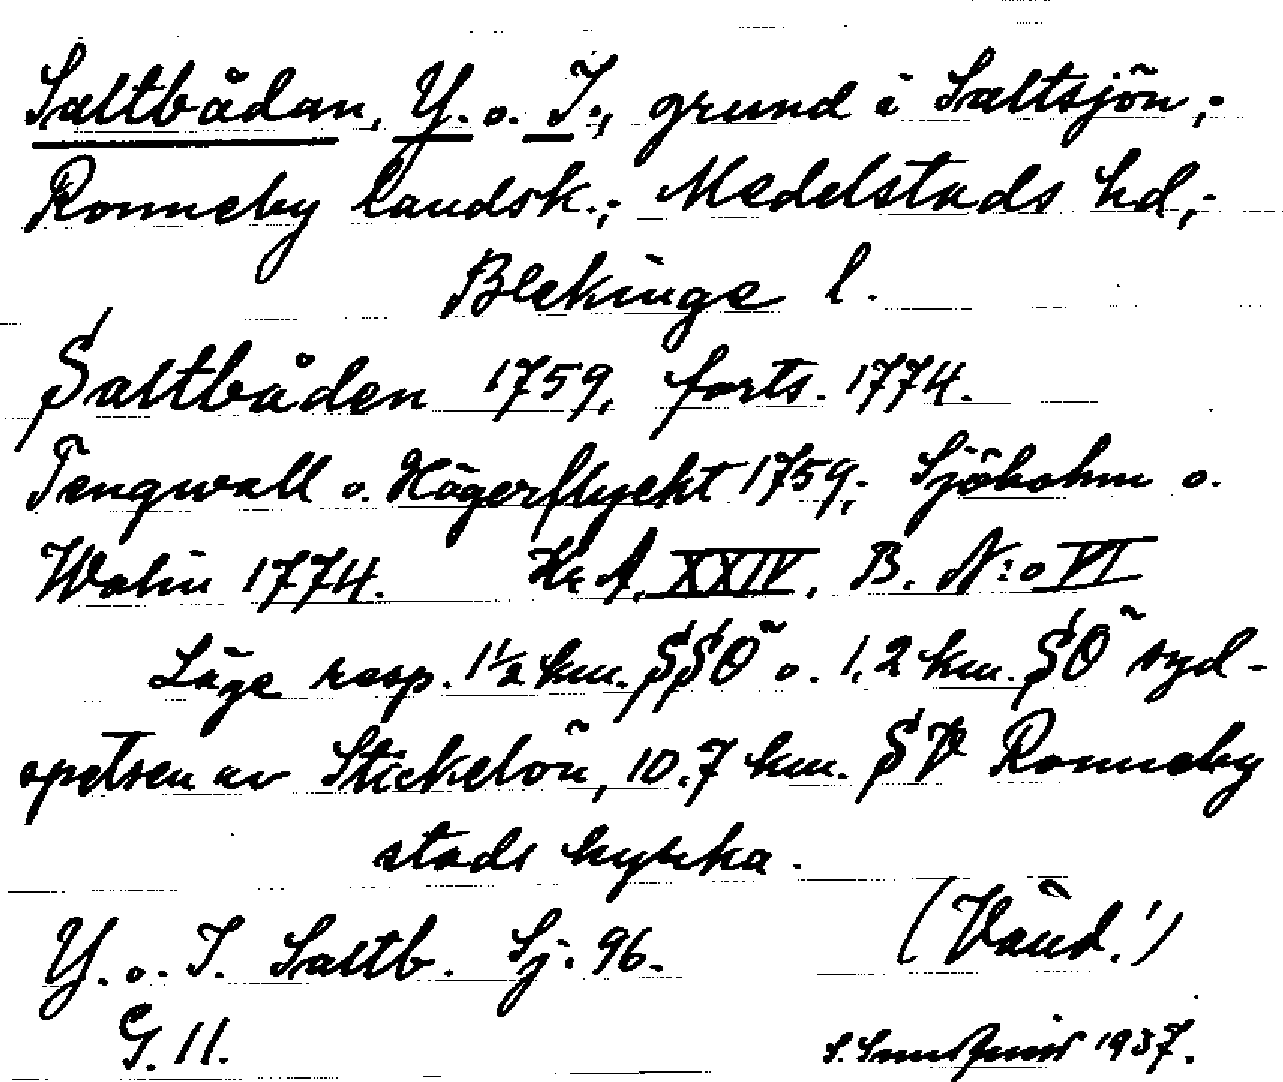 Saltbådan, Y. o. I., grund i Saltsjön,;
Ronneby landsk.; Medelstads hd,;
Blekinge l.
Saltbåden 1759, forts. 1774.
Tengwall o. Hägerflycht 1759,; Sjöbohm o.
Walin 1774. Kr. A. XXIV, B. N:o VI
Läge resp. 1½ km. SSÖ o. 1,2 km. SÖ syd-
spetsen av Stickelön, 10.7 km. SV Ronneby
stads kyrka.
Y. o. I. Saltb. Sj. 96.
(Vänd!)
G. 11.
1937.